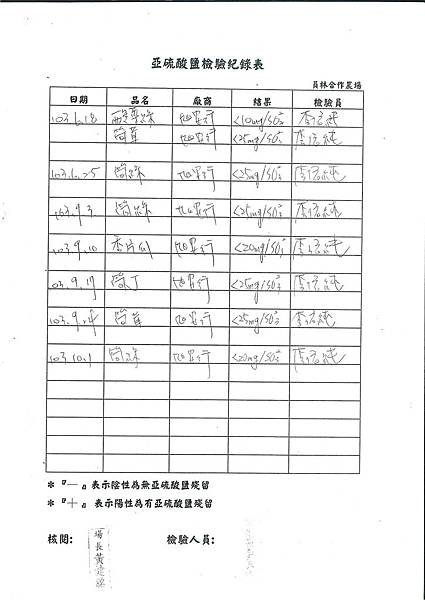 亞硫酸鹽檢驗紀錄表
員林合作農場
日期 品名 廠商 結果 檢驗員
103.6.18 酸菜絲 旭昇行 <10mg/50
筍茸 旭昇行 <25mg/50
103.6.25 筍絲 旭昇行 <25mg/50
103.9.3 筍絲 旭昇行 <25mg/50
103.9.10 香片 旭昇行 <20mg/50
103.9.17 筍丁 旭昇行 <25mg/50
103.9.24 筍茸 旭昇行 <25mg/50
103.10.1 筍絲 旭昇行 <20mg/50
* 『—』表示陰性為無亞硫酸鹽殘留
* 『十』表示陽性為有亞硫酸鹽殘留
核閱: 場長黃 檢驗人員: